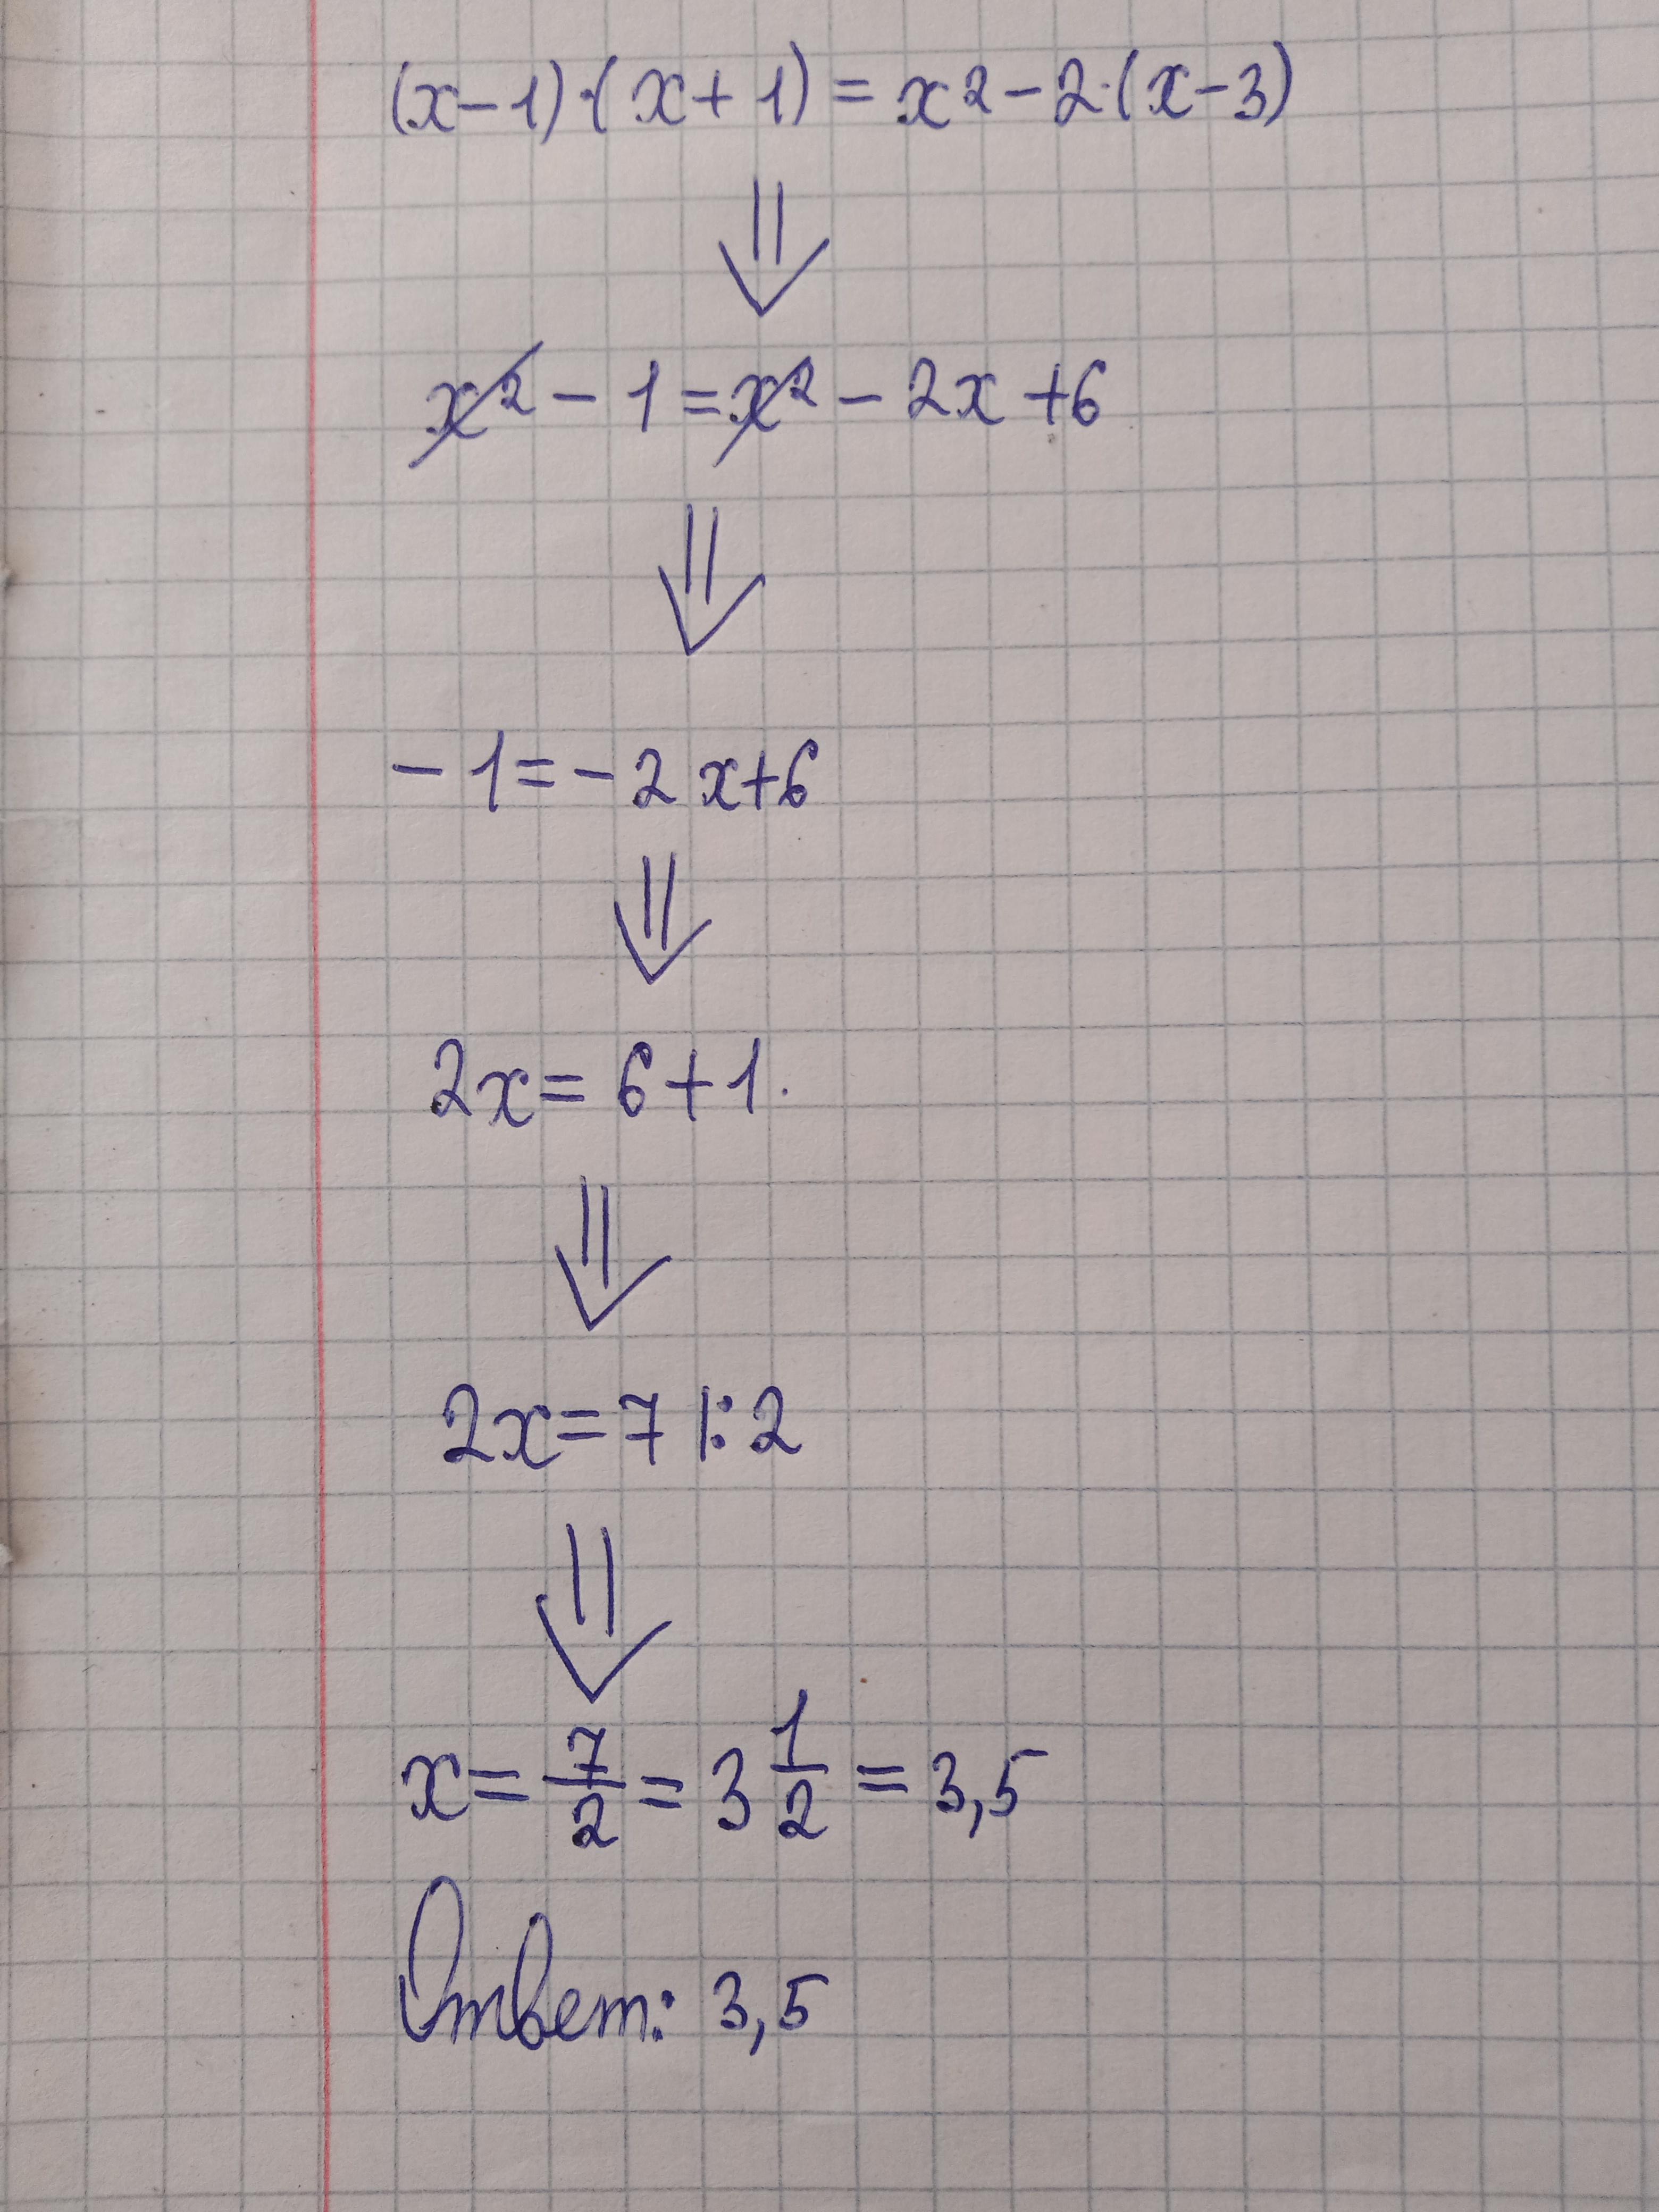 (x-1)·(x+1)=x²-2·(x-3)
⇓
x²-1=x²-2x+6
⇓
-1=-2x+6
⇓
2x=6+1.
⇓
2x=7 |:2
⇓
x=7/2=3 1/2=3,5
Ответ: 3,5